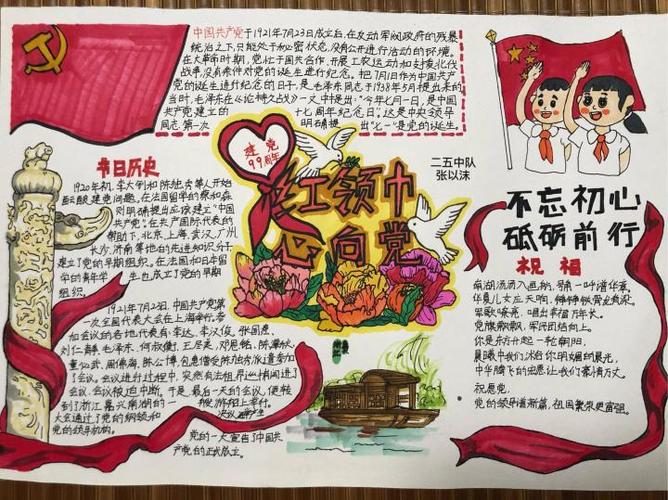 中国共产党于1921年7月23日成立后,在反动军阀政府的残暴
统治之下,只能处于秘密状态,没有公开进行活动的环境。
在大革命时期,党忙于国共合作,开展工农运动和支援北伐
战争,没有条件对党的诞生进行纪念。把7月1日作为中国共产
党的诞生进行纪念的日子,是毛泽东同志于1938年5月提出来的
当时,毛泽东在《论持久战》一文中提出:"今年七月一日,是中国
共产党建立的 十七周年纪念日",这是中央领导
同志第一次 明确提出"七一"是党的诞生。
建党
99周年
红领巾
心向党
二五中队
张以沫
节日历史
1920年初,李大钊和陈独秀等人开始
酝酿建党问题。在法国留学的蔡和森
则明确提出应该建立"中国
共产党"。在共产国际代表的
帮助下,北京,上海,武汉,广州
长沙,济南等地的先进知识分子
建立了党的早期组织。在法国和日年
留学的青年学 生也成立了党的早期
组织。
1921年7月23日,中国共产党第
一次全国代表大会在上海举行。参
加会议的各地代表有:李达、李汉俊、张国焘、
刘仁静、毛泽东、何叔衡、王尽美、邓恩铭、陈潭秋、
董必武、周佛海、陈公博、包惠僧受陈独秀派遣参加
了会议。会议进行过程中,突然有法租界巡捕闯进了
会议,会议被迫中断。于是,最后一天的会议,便转
到了浙江嘉兴南湖的一 游船上举行。
大会通过了党的纲领和
党的领导机构。
党的一大宣告了中国共
产党的正式成立。
不忘初心
砥砺前行
祝福
南湖荡荡入画舫,
华夏儿女立天响,
军歌嘹亮,唱出幸福万年长。
党旗飘飘,军民团结向上。
你是东方升起一轮朝阳,
晨曦中我们沐浴你明媚的晨光,
中华腾飞的思愿让我们豪情万丈。
祝愿党
党的领导谱新篇,祖国繁荣更富强。